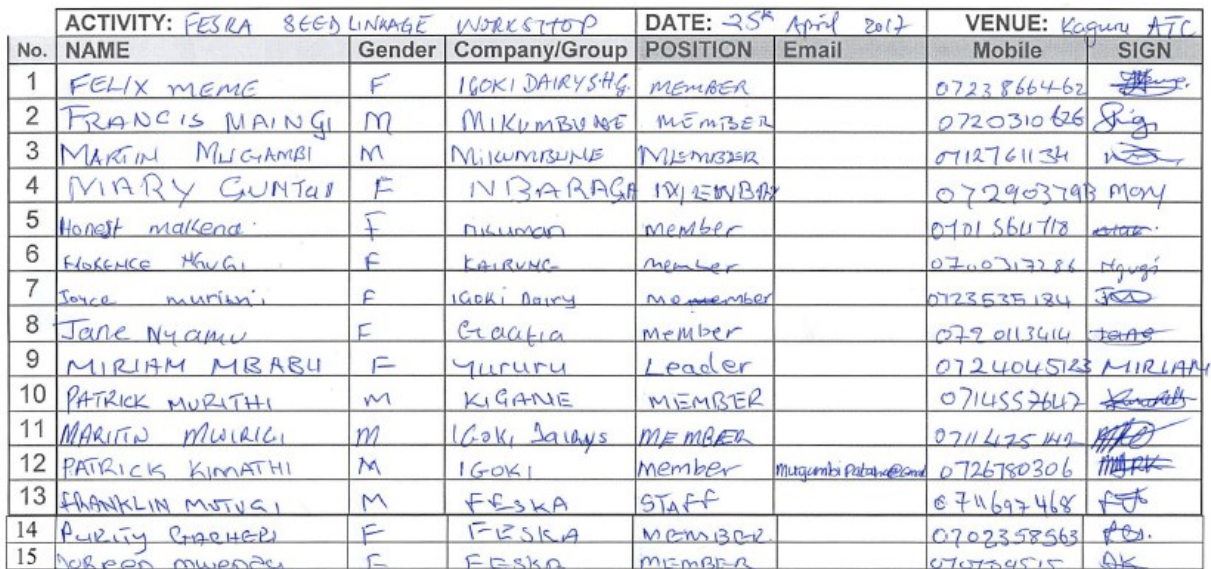 ACTIVITY: FESRA SEED LINKAGE WORKSHOP DATE: 25th April 2017 VENUE: Kaguru ATC
No. NAME Gender Company/Group POSITION Email Mobile SIGN
1 FELIX MEME F IGOKI DAIRY SHG. MEMBER 0723866462
2 FRANCIS MAINGI M MIKUMBUNE MEMBER 0720310626
3 MARTIN MUGAMBI M MIKUMBUNE MEMBER 0712761134
4 MARY GUNTAI F NBARAGA 072903793 Mary
5 Honest makena F nkuman member
6 FLORENCE NGUGI F KAIRUNG member Ngugi
7 Joyce F IGOKI Dairy member 0723535184
8 Jane Nyamu F member 0720113414 Jane
9 MIRIAM MBABU F Yururu Leader 0724045123 MIRIAM
10 PATRICK MURITHI M KIGANE MEMBER 0714557647
11 MARITIN MWIRIGI M IGOKI Dairys MEMBER 0711475142
12 PATRICK KIMATHI M IGOKI member 0726780306
13 FRANKLIN MUTUGI M FESKA STAFF 0711697468
14 PURITY GACHERI F FESKA MEMBER. 0702358563
15 F FESKA MEMBER